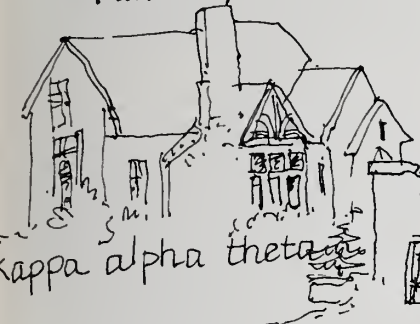 kappa alpha theta